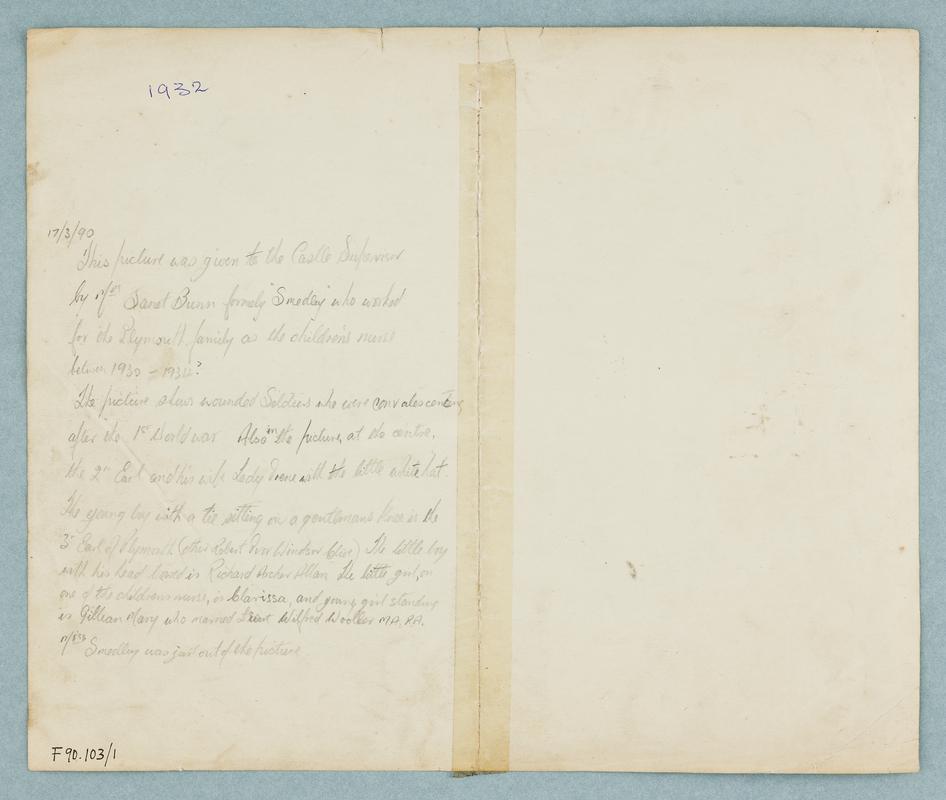 1932
17/3/90
This picture was given to the Castle Supervisor
by Mrs Janet Bunn formely "Smedley" who worked
for the Plymouth family as the children's nurse
between 1930 - 1934?
The picture shows wounded Soldiers who were convalescenting
after the 1st World war Also in the picture, at the centre,
the 2nd Earl and his wife Lady Irene with the little white hat.
The young boy with a tie sitting on a gentlemans knee is the
3rd Earl of Plymouth (other Robert Ivor Windsor Clive) The little boy
with his head bowed is Richard Archer Allan The little girl, on
one of the childrens nurse, is Clarissa, and young girl standing
is Gillean Mary who married Wilfred Wooller MA. RA.
Smedley was just out of the picture
F90.103/1